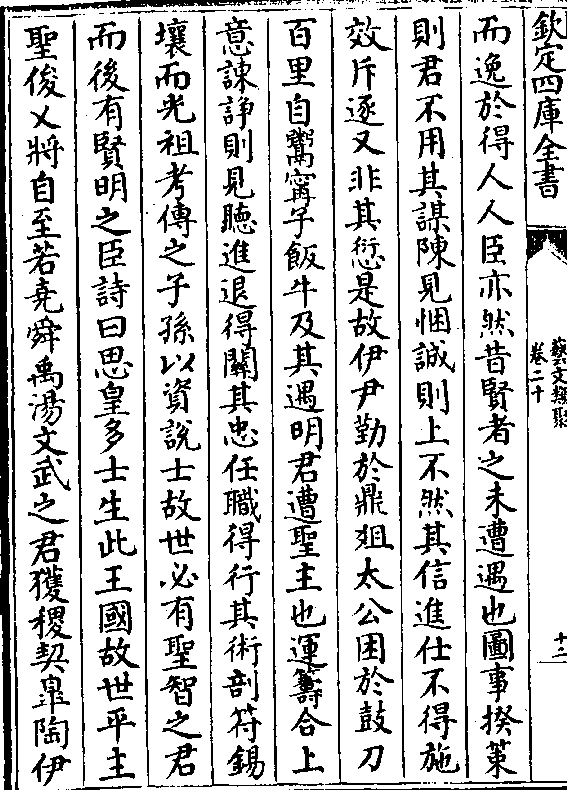 欽定四庫全書
藝文類聚
卷二十
十二
而逸於得人人臣亦然昔賢者之未遭遇也圖事揆策
則君不用其謀陳見悃誠則上不然其信進仕不得施
效斥逐又非其愆是故伊尹勤於鼎俎太公困於鼓刀
百里自鬻甯子飯牛及其遇明君遭聖主也運籌合上
意諫諍則見聽進退得關其忠任職得行其術剖符錫
壤而光祖考傳之子孫以資說士故世必有聖智之君
而後有賢明之臣詩曰思皇多士生此王國故世平主
聖俊乂將自至若堯舜禹湯文武之君獲稷契臯陶伊